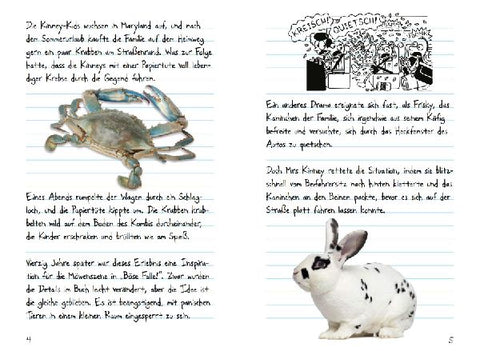 Die Kinney-Kids wuchsen in Maryland auf, und nach
dem Sommerurlaub kaufte die Familie auf dem Heimweg
gern ein paar Krabben am Straßenrand. Was zur Folge
hatte, dass die Kinneys mit einer Papiertüte voll leben-
diger Krebse durch die Gegend fuhren.
Eines Abends rumpelte der Wagen durch ein Schlag-
loch, und die Papiertüte kippte um. Die Krabben krab-
belten wild auf dem Boden des Kombis durcheinander,
die Kinder erschraken und brüllten wie am Spieß.
Vierzig Jahre später war dieses Erlebnis eine Inspira-
tion für die Möwenszene in „Böse Falle!". Zwar wurden
die Details im Buch leicht verändert, aber die Idee ist
die gleiche geblieben. Es ist beängstigend, mit panischen
Tieren in einem kleinen Raum eingesperrt zu sein.
4
KREISCH!
QUIETSCH!
Ein anderes Drama ereignete sich fast, als Frisky, das
Kaninchen der Familie, sich irgendwie aus seinem Käfig
befreite und versuchte, sich durch das Heckfenster des
Autos zu quetschen.
Doch Mrs Kinney rettete die Situation, indem sie blitz-
schnell vom Beifahrersitz nach hinten kletterte und das
Kaninchen an den Beinen packte, bevor es sich auf der
Straße platt fahren lassen konnte.
5